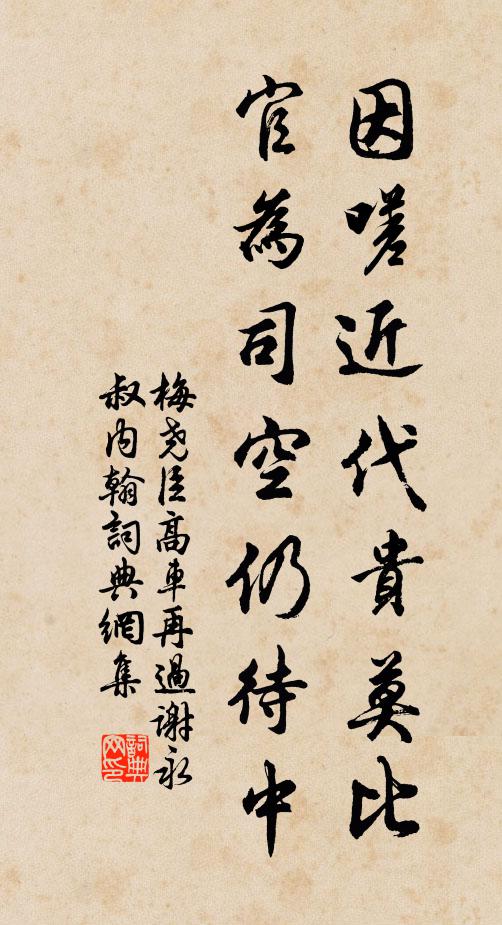 因嗟近代貴莫比
官為司空仍待中
梅堯臣高車再過謝永
叔内翰詞典網集
詞典网印